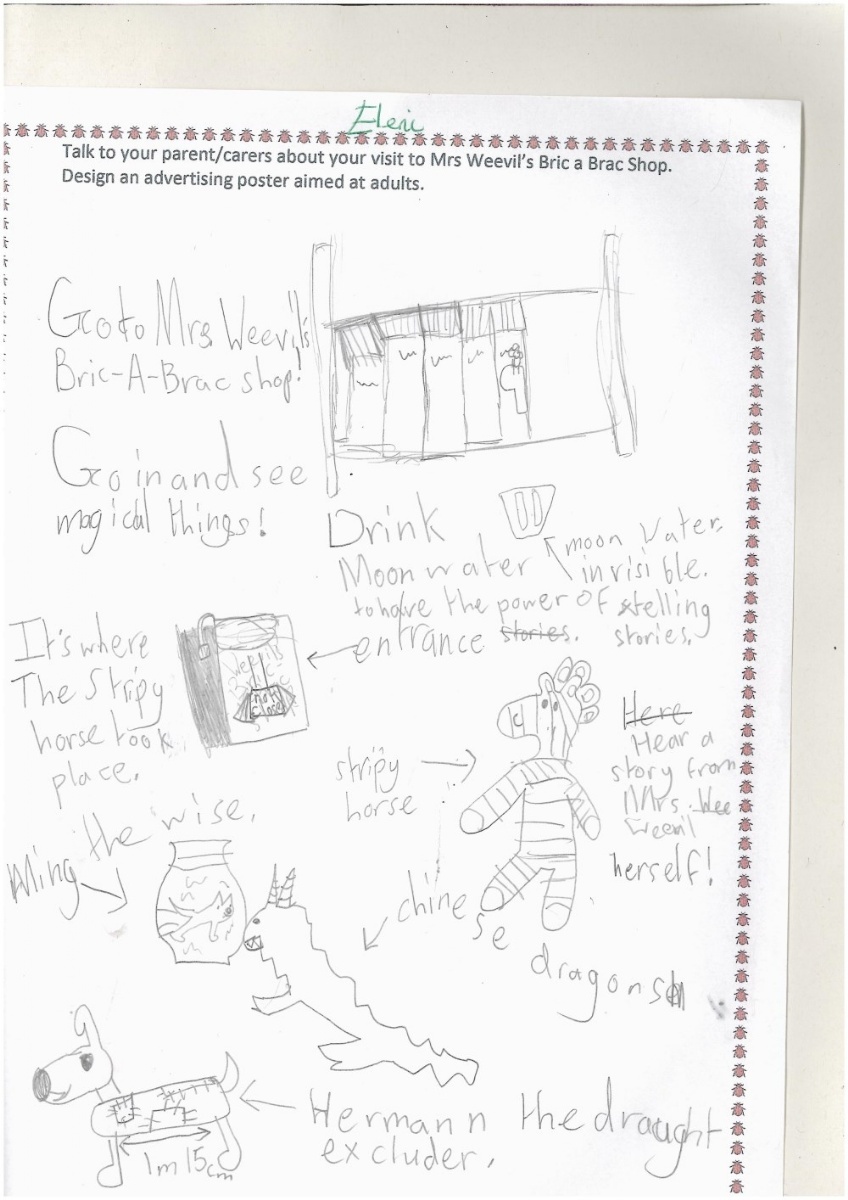 Eleni
Talk to your parent/carers about your visit to Mrs Weevil's Bric a Brac Shop.
Design an advertising poster aimed at adults.
Go to Mrs Weevil's
Bric-A-Brac shop!
Go in and see
magical things!
Drink
Moon water
to have the power of stelling
stories. stories.
moon water
invisible.
It's where
The Stripy
horse took
place.
entrance
stripy
horse
Here
Hear a
story from
Mrs. Wee
Weevil
herself!
Ming the wise.
chinese
dragons
Hermann the draught
excluder.
1m 15cm